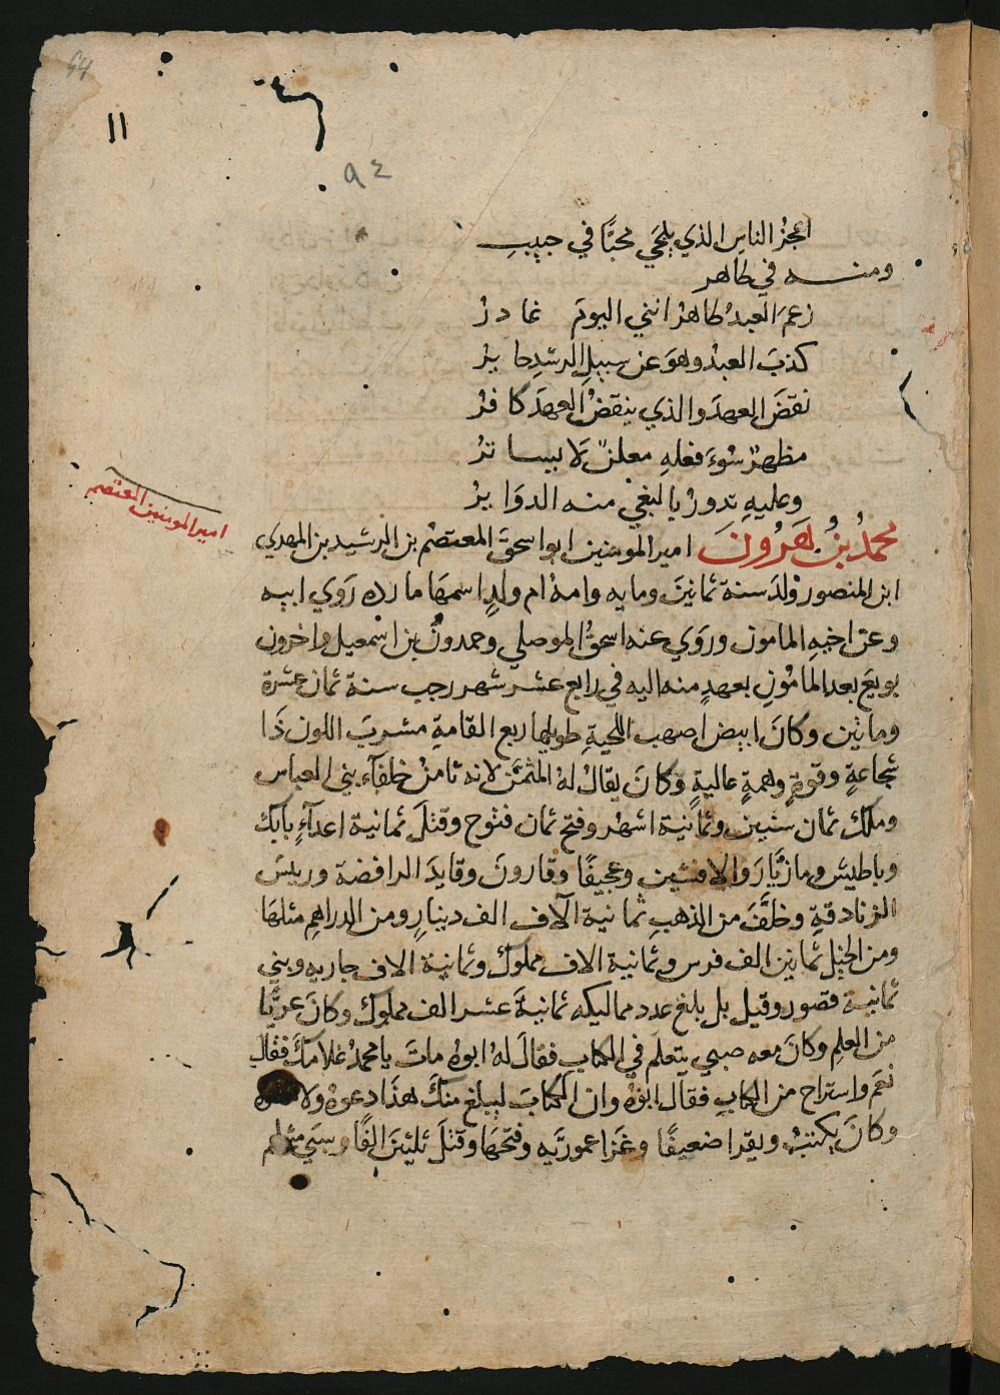 64
11
٩٤
اعجزُ الناسِ الذي يلحَي محبًّا في حبيبِ
ومنه في طاهر
زعمَ العبدُ طاهرٌ انني اليومَ غادرُ
كذبَ العبدُ وهوَ عن سبيلِ الرشدِ حايرُ
نقضَ العهدَ والذي ينقضُ العهدَ كافرُ
مظهرٌ سُوءَ فعلهِ معلنٌ لا يساترُ
وعليهِ تدورُ بالبغي منه الدوَايرُ
امير المومنين المعتصم
محمدُ بنُ هَرُونَ امير المومنين ابو اسحقَ المعتصمُ بن الرشيد بن المهدي
ابن المنصور وُلدَ سنة ثمانينَ ومايه وامهُ ام ولدٍ اسمهَا مارده رَوَي ابيه
وعن اخيهِ المامون ورَوَي عنه اسحقُ الموصلي وحمدونُ بن اسمعيل واخرون
بويعَ بعد المامُونِ بعهدٍ منه اليه في رابع عشر شهر رجب سنة ثمان عشرة
وماتين وكانَ ابيض اصهب اللحيةِ طويلها ربع القامةِ مشربَ اللون ذَا
شجاعةٍ وقوةٍ وهمةٍ عاليةٍ وكانَ يقالُ لهُ المثمنُ لانه ثامنُ خلفآءِ بني العباس
وملكَ ثمان سنين وثمانية اشهُر وفتح ثمان فتوح وقتلَ ثمانية اعدآءٍ بابك
وباطيش ومازيَّارَ والافشين وعجيفًا وقارونَ وقايدَ الرافضة وريسَ
الزنادقةِ وخلَّفَ من الذهبِ ثمانية الاف الف دينارٍ ومن الدراهمِ مثلهَا
ومن الخيل ثمانين الف فرس وثمانية الاف مملوك وثمانية الاف جاريه وبني
ثمانية قصور وقيل بل بلغ عدد مماليكه ثمانيةَ عشر الف مملوك وكانَ عريًّا
من العلمِ وكانَ معه صبي يتعلم في الكتاب فقالَ لهُ ابوهُ ماتَ يا محمدُ غلامكَ فقال
نعم واستراح من الكتابِ فقال ابوهُ وان الكتابَ ليبلغ منكَ هذَا دعوهُ ولا
وكانَ يكتبُ ويقرا ضعيفًا وغَزَا عموريَّه وفتحهَا وقتلَ ثلثينَ الفًا وسبَي مثلهم